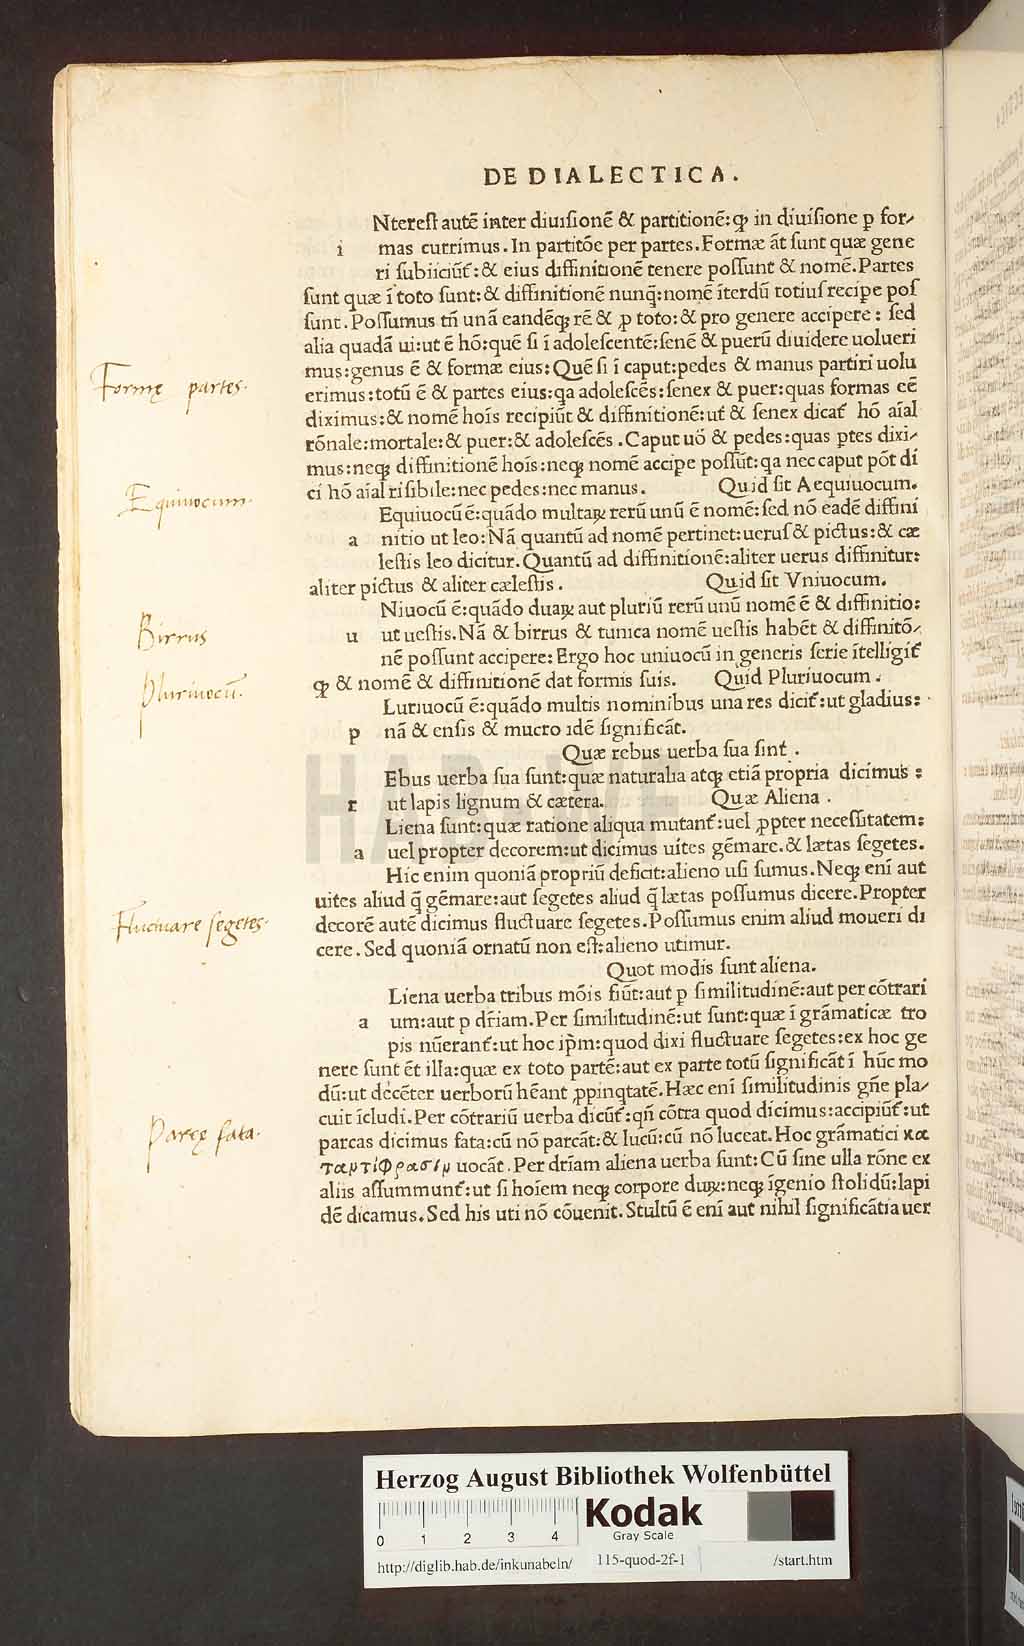 DE DIALECTICA.
Nterest autē inter diuisionē & partitionē: ꝙ in diuisione ꝑ for-
i mas currimus. In partitōe per partes. Formæ āt sunt quæ gene
ri subiiciūt̃: & eius diffinitionē tenere possunt & nomē. Partes
sunt quæ ī toto sunt: & diffinitionē nunq̄: nomē īterdū totius recipe pos
sunt. Possumus tñ unā eandēq; rē & ꝓ toto: & pro genere accipere: sed
alia quadā ui: ut ē hō: quē si ī adolescentē: senē & puerū diuidere uolueri
mus: genus ē & formæ eius: Quē si ī caput: pedes & manus partiri uolu
Formę partes.
erimus: totū ē & partes eius: qa adolescēs: senex & puer: quas formas eē
diximus: & nomē hoīs recipiūt & diffinitionē: ut̃ & senex dicat̃ hō aīal
rōnale: mortale: & puer: & adolescēs. Caput uō & pedes: quas ꝑtes dixi-
mus: neq; diffinitionē hoīs: neq; nomē accipe possūt: qa nec caput pōt di
ci hō aīal risibile: nec pedes: nec manus. Quid sit Aequiuocum.
Equiuocum.
Equiuocū ē: quādo multaꝝ rerū unū ē nomē: sed nō eadē diffini
a nitio ut leo: Nā quantū ad nomē pertinet: uerus & pictus: & cæ
lestis leo dicitur. Quantū ad diffinitionē: aliter uerus diffinitur:
aliter pictus & aliter cælestis. Quid sit Vniuocum.
Niuocū ē: quādo duaꝝ aut pluriū rerū unū nomē ē & diffinitio:
Birrus
u ut uestis. Nā & birrus & tunica nomē uestis habēt & diffinitō-
nē possunt accipere: Ergo hoc uniuocū in generis serie ītelligit̃
Pluriuocū.
ꝙ & nomē & diffinitionē dat formis suis. Quid Pluriuocum.
Luriuocū ē: quādo multis nominibus una res dicit̃: ut gladius:
p nā & ensis & mucro idē significāt.
Quæ rebus uerba sua sint.
Ebus uerba sua sunt: quæ naturalia atq; etiā propria dicimus:
r ut lapis lignum & cætera. Quæ Aliena.
Liena sunt: quæ ratione aliqua mutant̃: uel ꝓpter necessitatem:
a uel propter decorem: ut dicimus uites gēmare. & lætas segetes.
Hic enim quoniā propriū deficit: alieno usi sumus. Neq; enī aut
uites aliud q̄ gēmare: aut segetes aliud q̄ lætas possumus dicere. Propter
Fluctuare segetes.
decorē autē dicimus fluctuare segetes. Possumus enim aliud moueri di
cere. Sed quoniā ornatū non est: alieno utimur.
Quot modis sunt aliena.
Liena uerba tribus mōis fiūt: aut ꝑ similitudinē: aut per cōtrari
a um: aut ꝑ dr̄iam. Per similitudinē: ut sunt: quæ ī grāmaticæ tro
pis nūerant̃: ut hoc ip̄m: quod dixi fluctuare segetes: ex hoc ge
nere sunt ēt illa: quæ ex toto partē: aut ex parte totū significāt ī hūc mo
dū: ut dēcēter uerborū hēant ꝓpinqtatē. Hæc enī similitudinis gn̄e pla-
cuit īcludi. Per cōtrariū uerba dicūt̃: qn̄ cōtra quod dicimus: accipiūt̃: ut
Parcę fata.
parcas dicimus fata: cū nō parcāt: & lucū: cū nō luceat. Hoc grāmatici κα
ταντίφρασιν uocāt. Per dr̄iam aliena uerba sunt: Cū sine ulla rōne ex
aliis assummunt̃: ut si hoīem neq; corpore duꝝ: neq; īgenio stolidū: lapi
dē dicamus. Sed his uti nō cōuenit. Stultū ē enī aut nihil significātia uer
HAB WF
Herzog August Bibliothek Wolfenbüttel
0 1 2 3 4
Kodak
Gray Scale
http://diglib.hab.de/inkunabeln/ 115-quod-2f-1 /start.htm